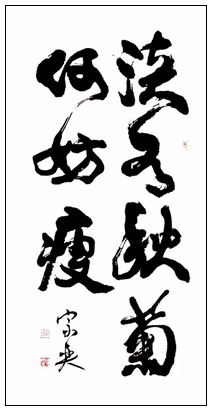 淡若秋菊
何妨瘦
宗奕